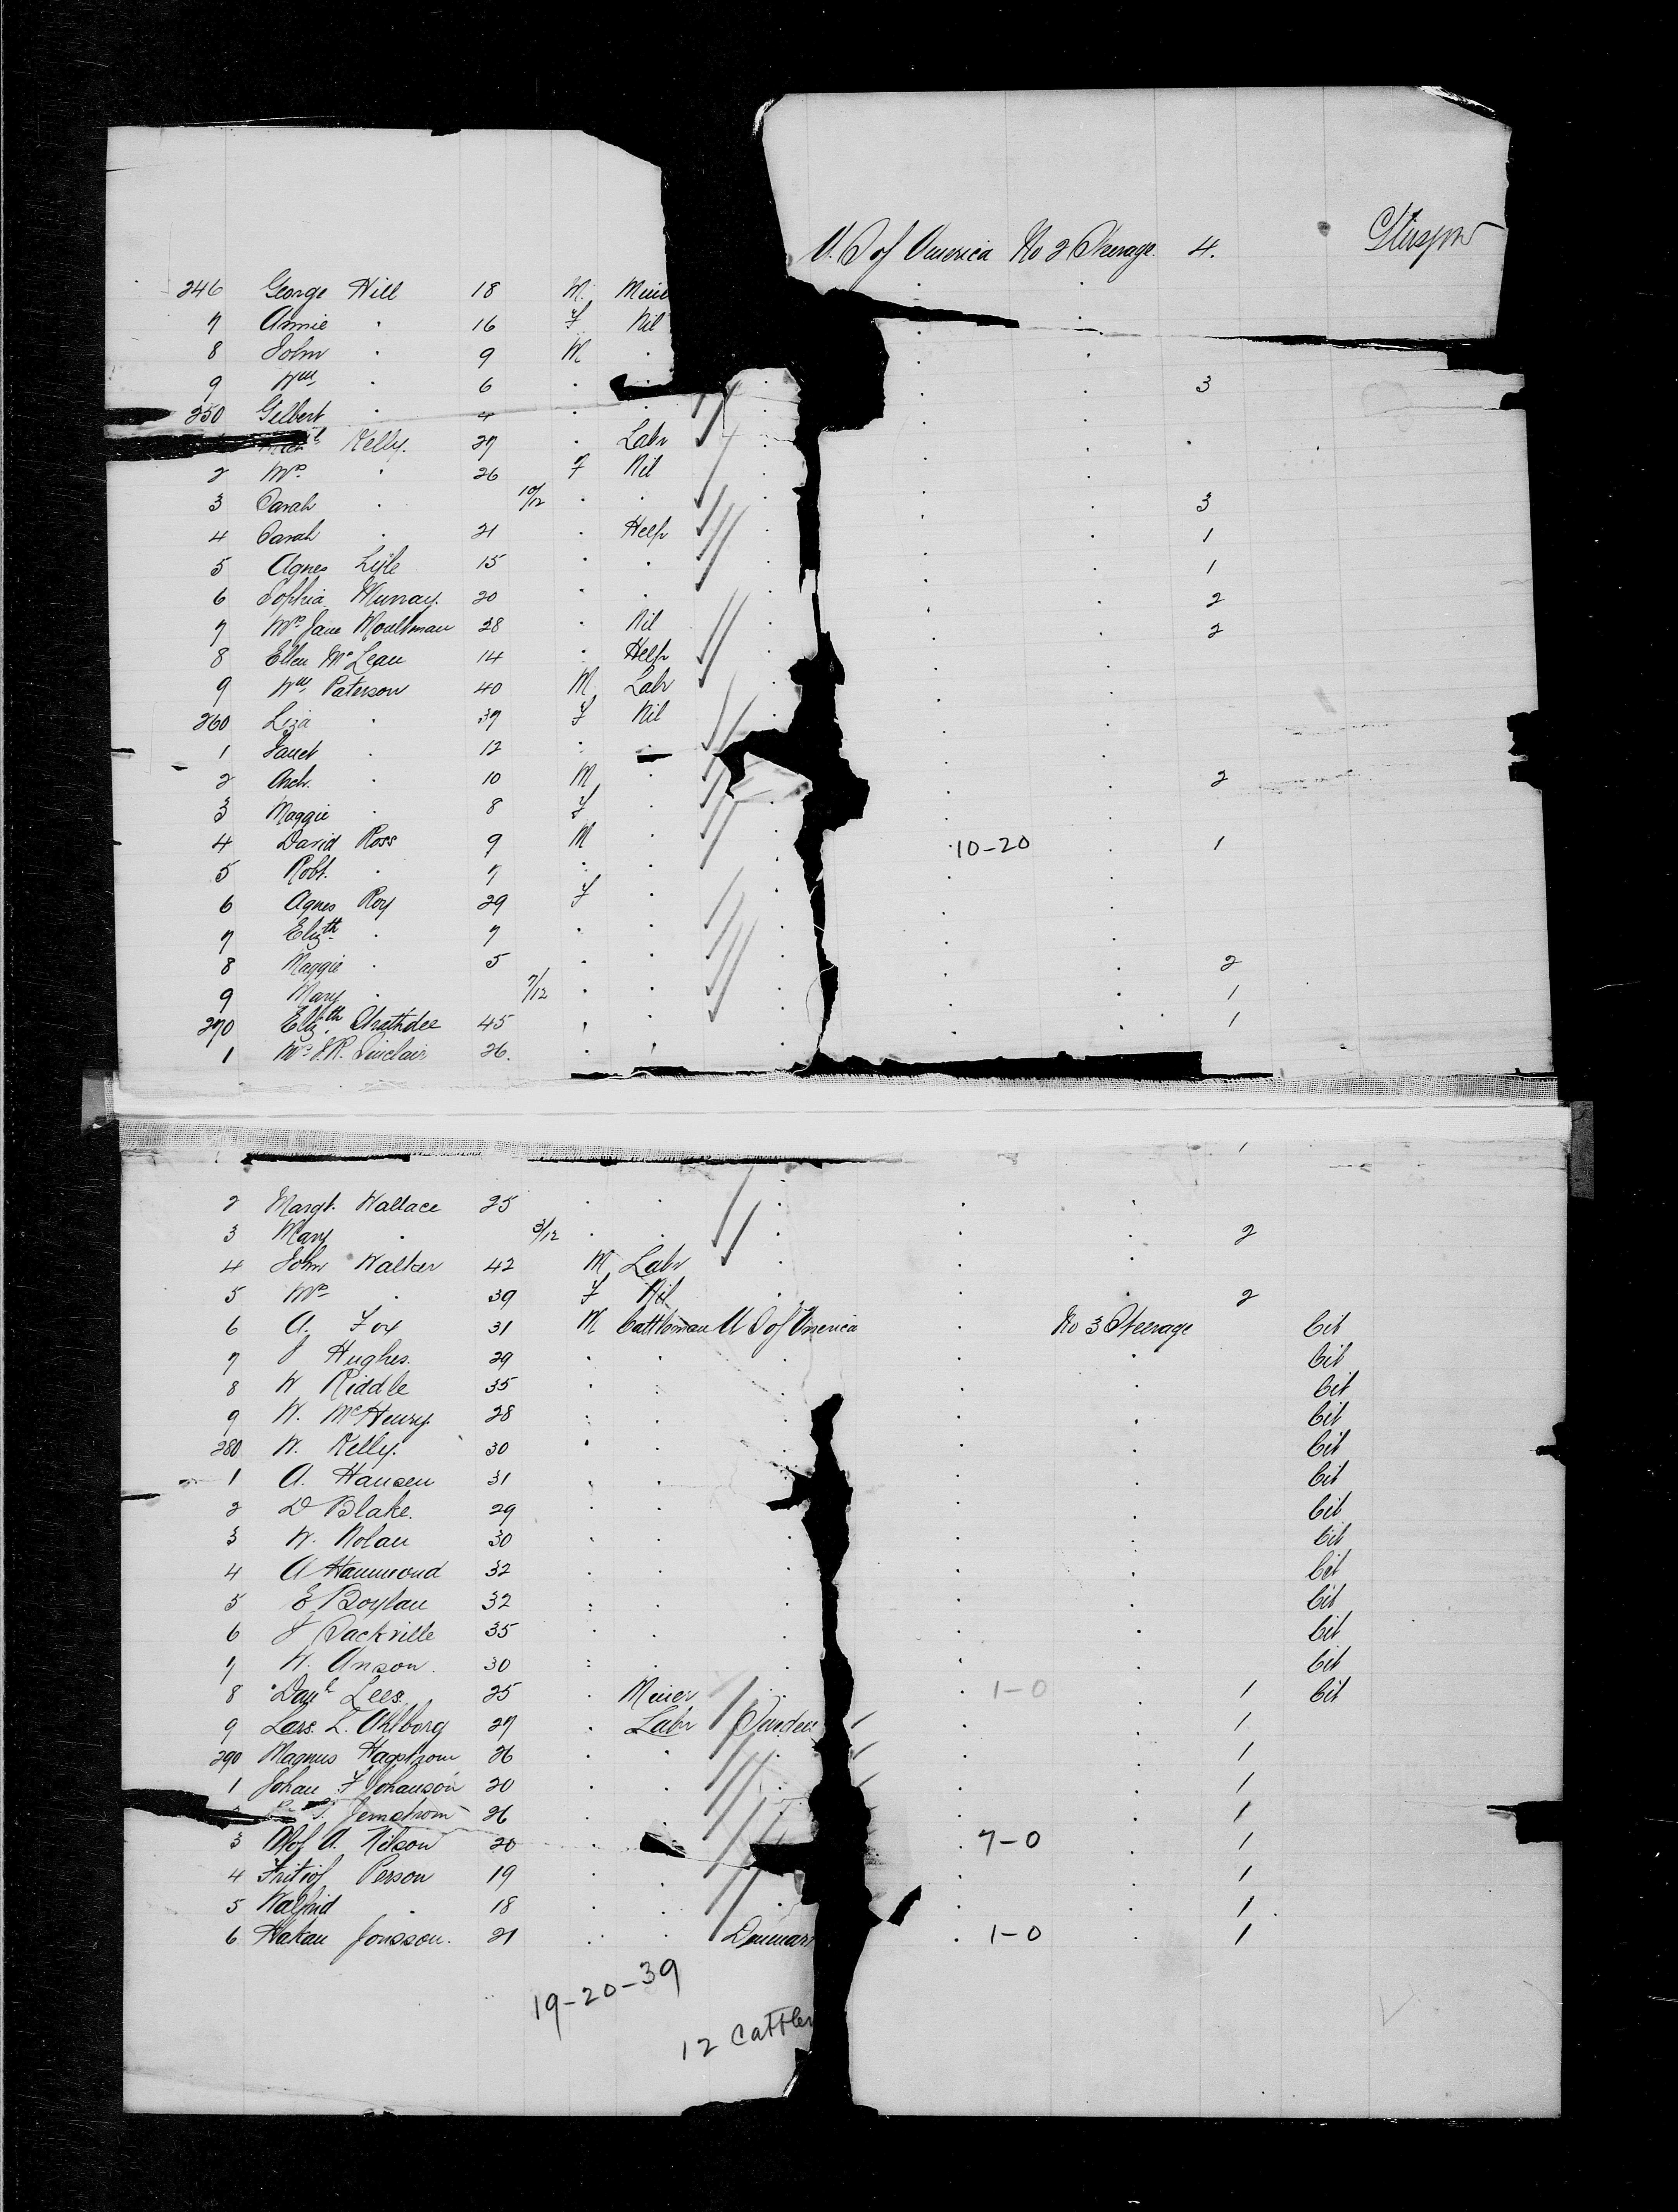 U. S of America No 2 Steerage. 4.
246 George Hill 18 M.
7 Annie " 16 F Nil
8 John " 9 M "
9 Wm " 6 " " 3
250 Gilbert " 4 " "
Kelly. 27 " Labr
2 Mrs " 26 F Nil
3 Sarah " 10/12 " " 3
4 Sarah " 21 " Help 1
5 Agnes Lyle 15 " " 1
6 Sophia Murray. 20 " " 2
7 Mrs Jane Moultman 28 " Nil 2
8 Ellen McLean 14 " Help
9 Wm Paterson 40 M Labr
260 Liza " 37 F Nil
1 Janet " 12 " "
2 Arch. " 10 M " 2
3 Maggie " 8 F "
4 David Ross 9 M " 10-20 " 1
5 Robt. " 7 " "
6 Agnes Roy 29 F "
7 Elizth " 7 " "
8 Maggie " 5 " " 2
9 Mary " 7/12 " " 1
270 Elizth Strathdee 45 " " 1
1 Mrs J.R. Sinclair 26. " "
1
2 Margt. Wallace 25 " "
3 Mary " 3/12 " " 2
4 John Walker 42 M Labr
5 Mrs " 39 F Nil " 2
6 A. Fox 31 M Cattleman U S of America " No 3 Steerage Cit
7 J Hughes. 29 " " " " " Cit
8 W Riddle 35 " " " " " Cit
9 W. McHenry. 28 " " " " " Cit
280 W. Kelly. 30 " " " " " Cit
1 A. Hansen 31 " " " " Cit
2 D Blake. 29 " " " " Cit
3 W. Nolan 30 " " " " " Cit
4 A Hammond 32 " " " " " Cit
5 E Boylan 32 " " " " " Cit
6 J Sackville 35 " " " " " Cit
7 W. Anson. 30 " " " " " Cit
8 Danl Lees. 25 " Miner " " 1-0 " 1 Cit
9 Lars. L. Ahlborg 27 " Labr " " 1
290 Magnus Hagstrom 26 " " " " " 1
1 Johan F Johanson 20 " " " " " 1
26 " " " " 1
3 Olof A. Nilson 20 " 7-0 " 1
4 Fritiof Person 19 " " " " 1
5 Walfrid " 18 " " " " " 1
6 Hakan Jonsson. 21 " " " 1-0 " 1
19-20-39